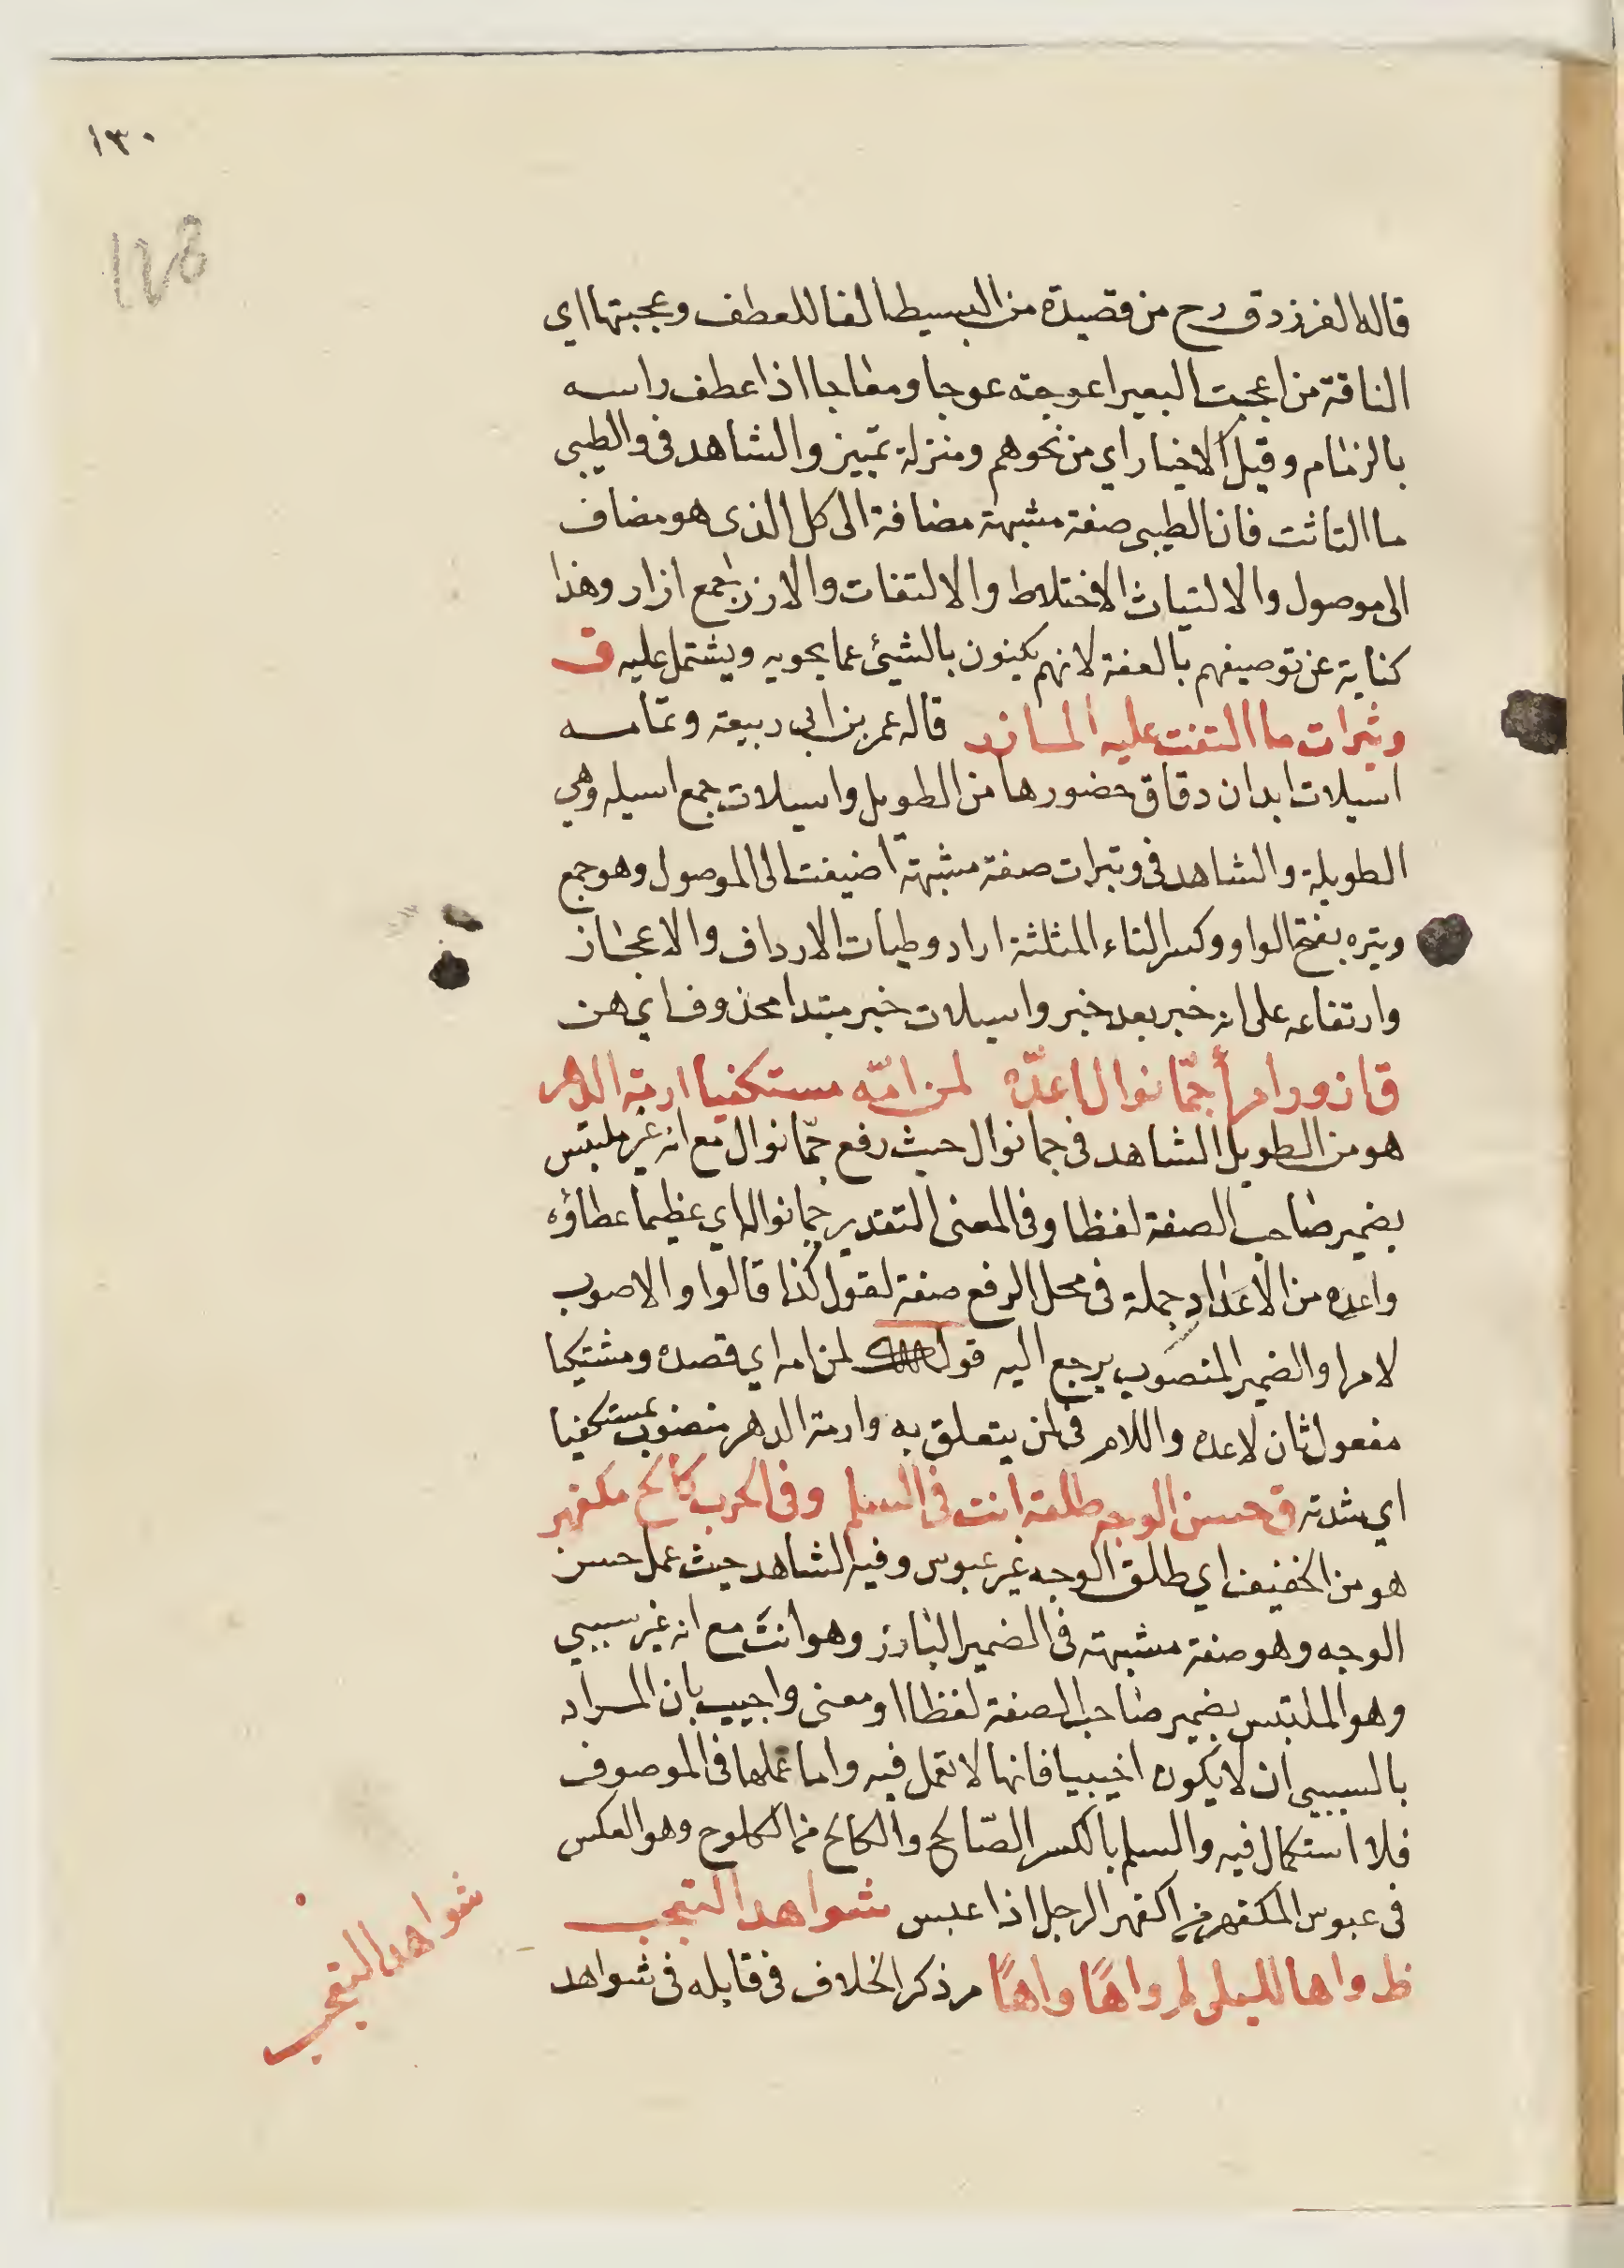 ١٣٠
128
قاله الفرزدق رح من قصيدة من البسيط الفا للعطف وعجبتها اي
الناقة من اعجبت البعير اعوجته عوجا ومعاجا اذا عطف راسه
بالزمام وقيل الاخيار اي من نحوهم ومنزلة تمييز والشاهد في والطيبى
ما التاثت فان الطيبى صفة مشبهة مضافة الى كل الذى هو مضاف
الى موصول والالتياث الاختلاط والالتفات والازر جمع ازار وهذا
كناية عن توصيفهم بالعفة لانهم يكنون بالشئ عما يحويه ويشتمل عليه ق
وثيرات ما التفت عليه المازر قاله عمر بن ابي ربيعة وتمامه
اسيلات ابدان دقاق خصورها من الطويل واسيلات جمع اسيله وهي
الطويلة والشاهد في وثيرات صفة مشبهة اضيفت الى الموصول وهو جمع
وثيره بفتح الواو وكسر الثاء المثلثة اراد وطيات الارداف والاعجاز
وارتفاعه على انه خبر بعد خبر واسيلات خبر مبتدا محذوف اي هن
ق ازور امرأ جمّا نوال اعدّه لمن امّه مستكفيا ازمة الدهر
هو من الطويل الشاهد في جما نوال حيث رفع جمّا نوال مع انه غير ملتبس
بضمير صاحب الصفة لفظا وفى المعنى التقدير جما نواله اي عظيما عطاؤه
واعده من الاعداد جملة في محل الرفع صفة لقول كذا قالوا والاصوب
لامرا والضمير المنصوب يرجع اليه قوله لمن امه اي قصده ومشتكيا
مفعول ثان لاعده واللام في لمن يتعلق به وازمة الدهر منصوب بمستكفيا
اي شدته ق حسن الوجه طلقه انت في السلم وفى الحرب كالح مكفهر
هو من الخفيف اي طلق الوجه غير عبوس وفيه الشاهد حيث عمل حسن
الوجه وهو صفة مشبهة في الضمير البارز وهو انت مع انه غير سببي
وهو الملتبس بضمير صاحب الصفة لفظا او معنى واجيب بان المراد
بالسببي ان لا يكون اجنبيا فانها لا تعمل فيه واما عملها في الموصوف
فلا استكمال فيه والسلم بالكسر الصّالح والكالح من الكلوح وهو العكس
في عبوس المكفهر من اكفهر الرجل اذا عبس شواهد التعجب
ظ واها لليلى ثم واهًا واهًا مر ذكر الخلاف في قايله في شواهد
شواهد التعجب